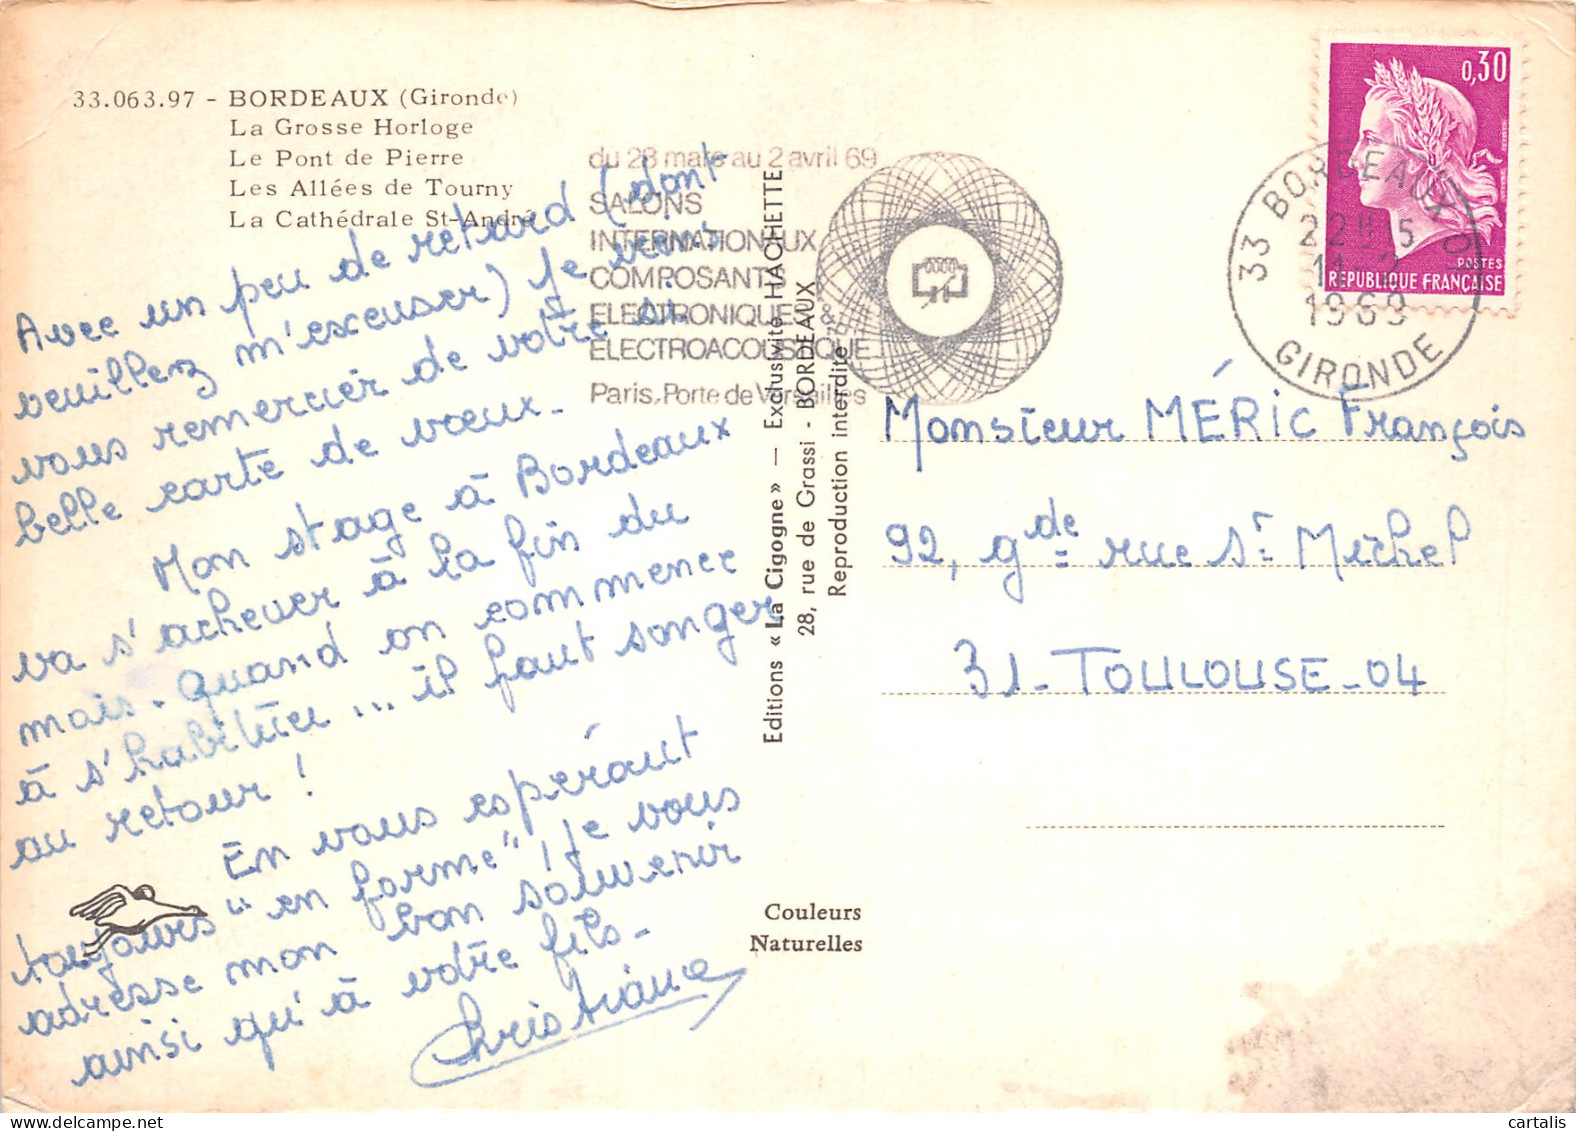 33.063.97 - BORDEAUX (Gironde)
La Grosse Horloge
Le Pont de Pierre
Les Allées de Tourny
La Cathédrale St-André
Avec un peu de retard (dont
veuillez m'excuser) je viens
vous remercier de votre si
belle carte de vœux.
Mon stage à Bordeaux
va s'achever à la fin du
mois. Quand on commence
à s'habituer ... il faut songer
au retour !
En vous espérant
toujours "en forme", je vous
adresse mon bon souvenir
ainsi qu'à votre fils.
Christiane
du 28 mars au 2 avril 69
SALONS
INTERNATIONAUX
COMPOSANTS
ELECTRONIQUES &
ELECTROACOUSTIQUE
Paris, Porte de Versailles
Editions « La Cigogne » — Exclusivité HACHETTE
28, rue de Grassi - BORDEAUX
Reproduction interdite
Couleurs
Naturelles
0,30
POSTES
REPUBLIQUE FRANÇAISE
33 BORDEAUX
22H15
11-2
1969
GIRONDE
Monsieur MÉRIC François
92, gde rue St Michel
31-TOULOUSE-04
cartalis